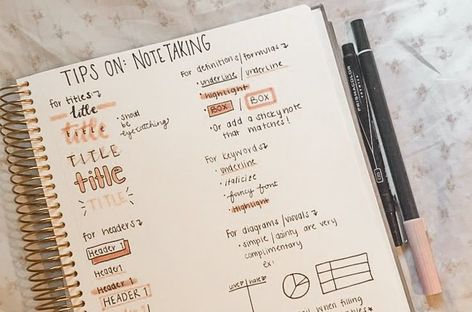 TIPS ON: NOTETAKING
For titles
title
title
• should be
eye catching!
TITLE
title
TITLE
For headers
Header 1
Header1
Header 1
HEADER 1
For definitions/formulas
• underline / underline
highlight
BOX / BOX
• Or add a sticky note
that matches!
For keywords
• underline
• italicize
• fancy font
• highlight
For diagrams/visuals
• simple/dainty are very
complimentary
ex:
when filling